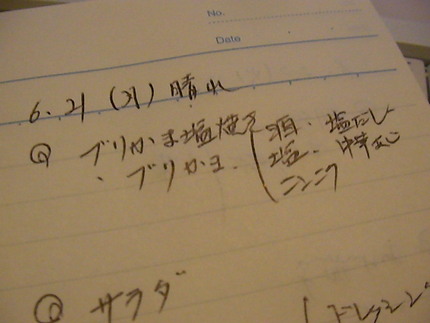 No.
Date
6.21 (月) 晴れ
◎ ブリかま塩焼き
・ブリかま
酒・塩だし
塩・中華あじ
ニンニク
◎ サラダ
ドレッシング